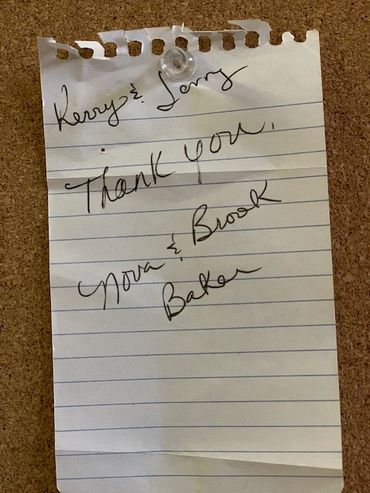 Kerry & Larry
Thank you,
Nova & Brook
Baker